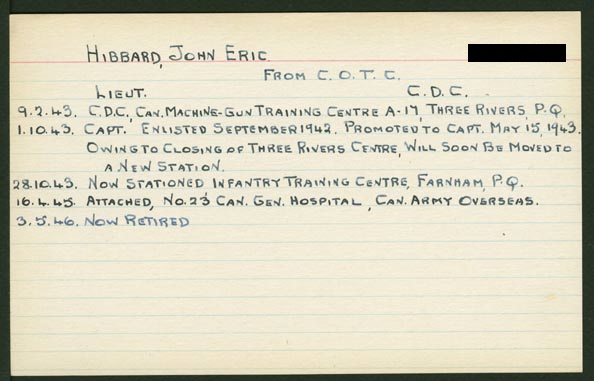 HIBBARD, JOHN ERIC
FROM C.O.T.C.
LIEUT. C.D.C.
9.2.43. C.D.C, CAN. MACHINE-GUN TRAINING CENTRE A-17, THREE RIVERS, P.Q.
1.10.43. CAPT. ENLISTED SEPTEMBER 1942. PROMOTED TO CAPT. MAY 15, 1943.
OWING TO CLOSING OF THREE RIVERS CENTRE, WILL SOON BE MOVED TO
A NEW STATION.
28.10.43. NOW STATIONED INFANTRY TRAINING CENTRE, FARNHAM, P.Q.
16.4.45. ATTACHED, NO. 23 CAN. GEN. HOSPITAL, CAN. ARMY OVERSEAS.
3.5.46. NOW RETIRED